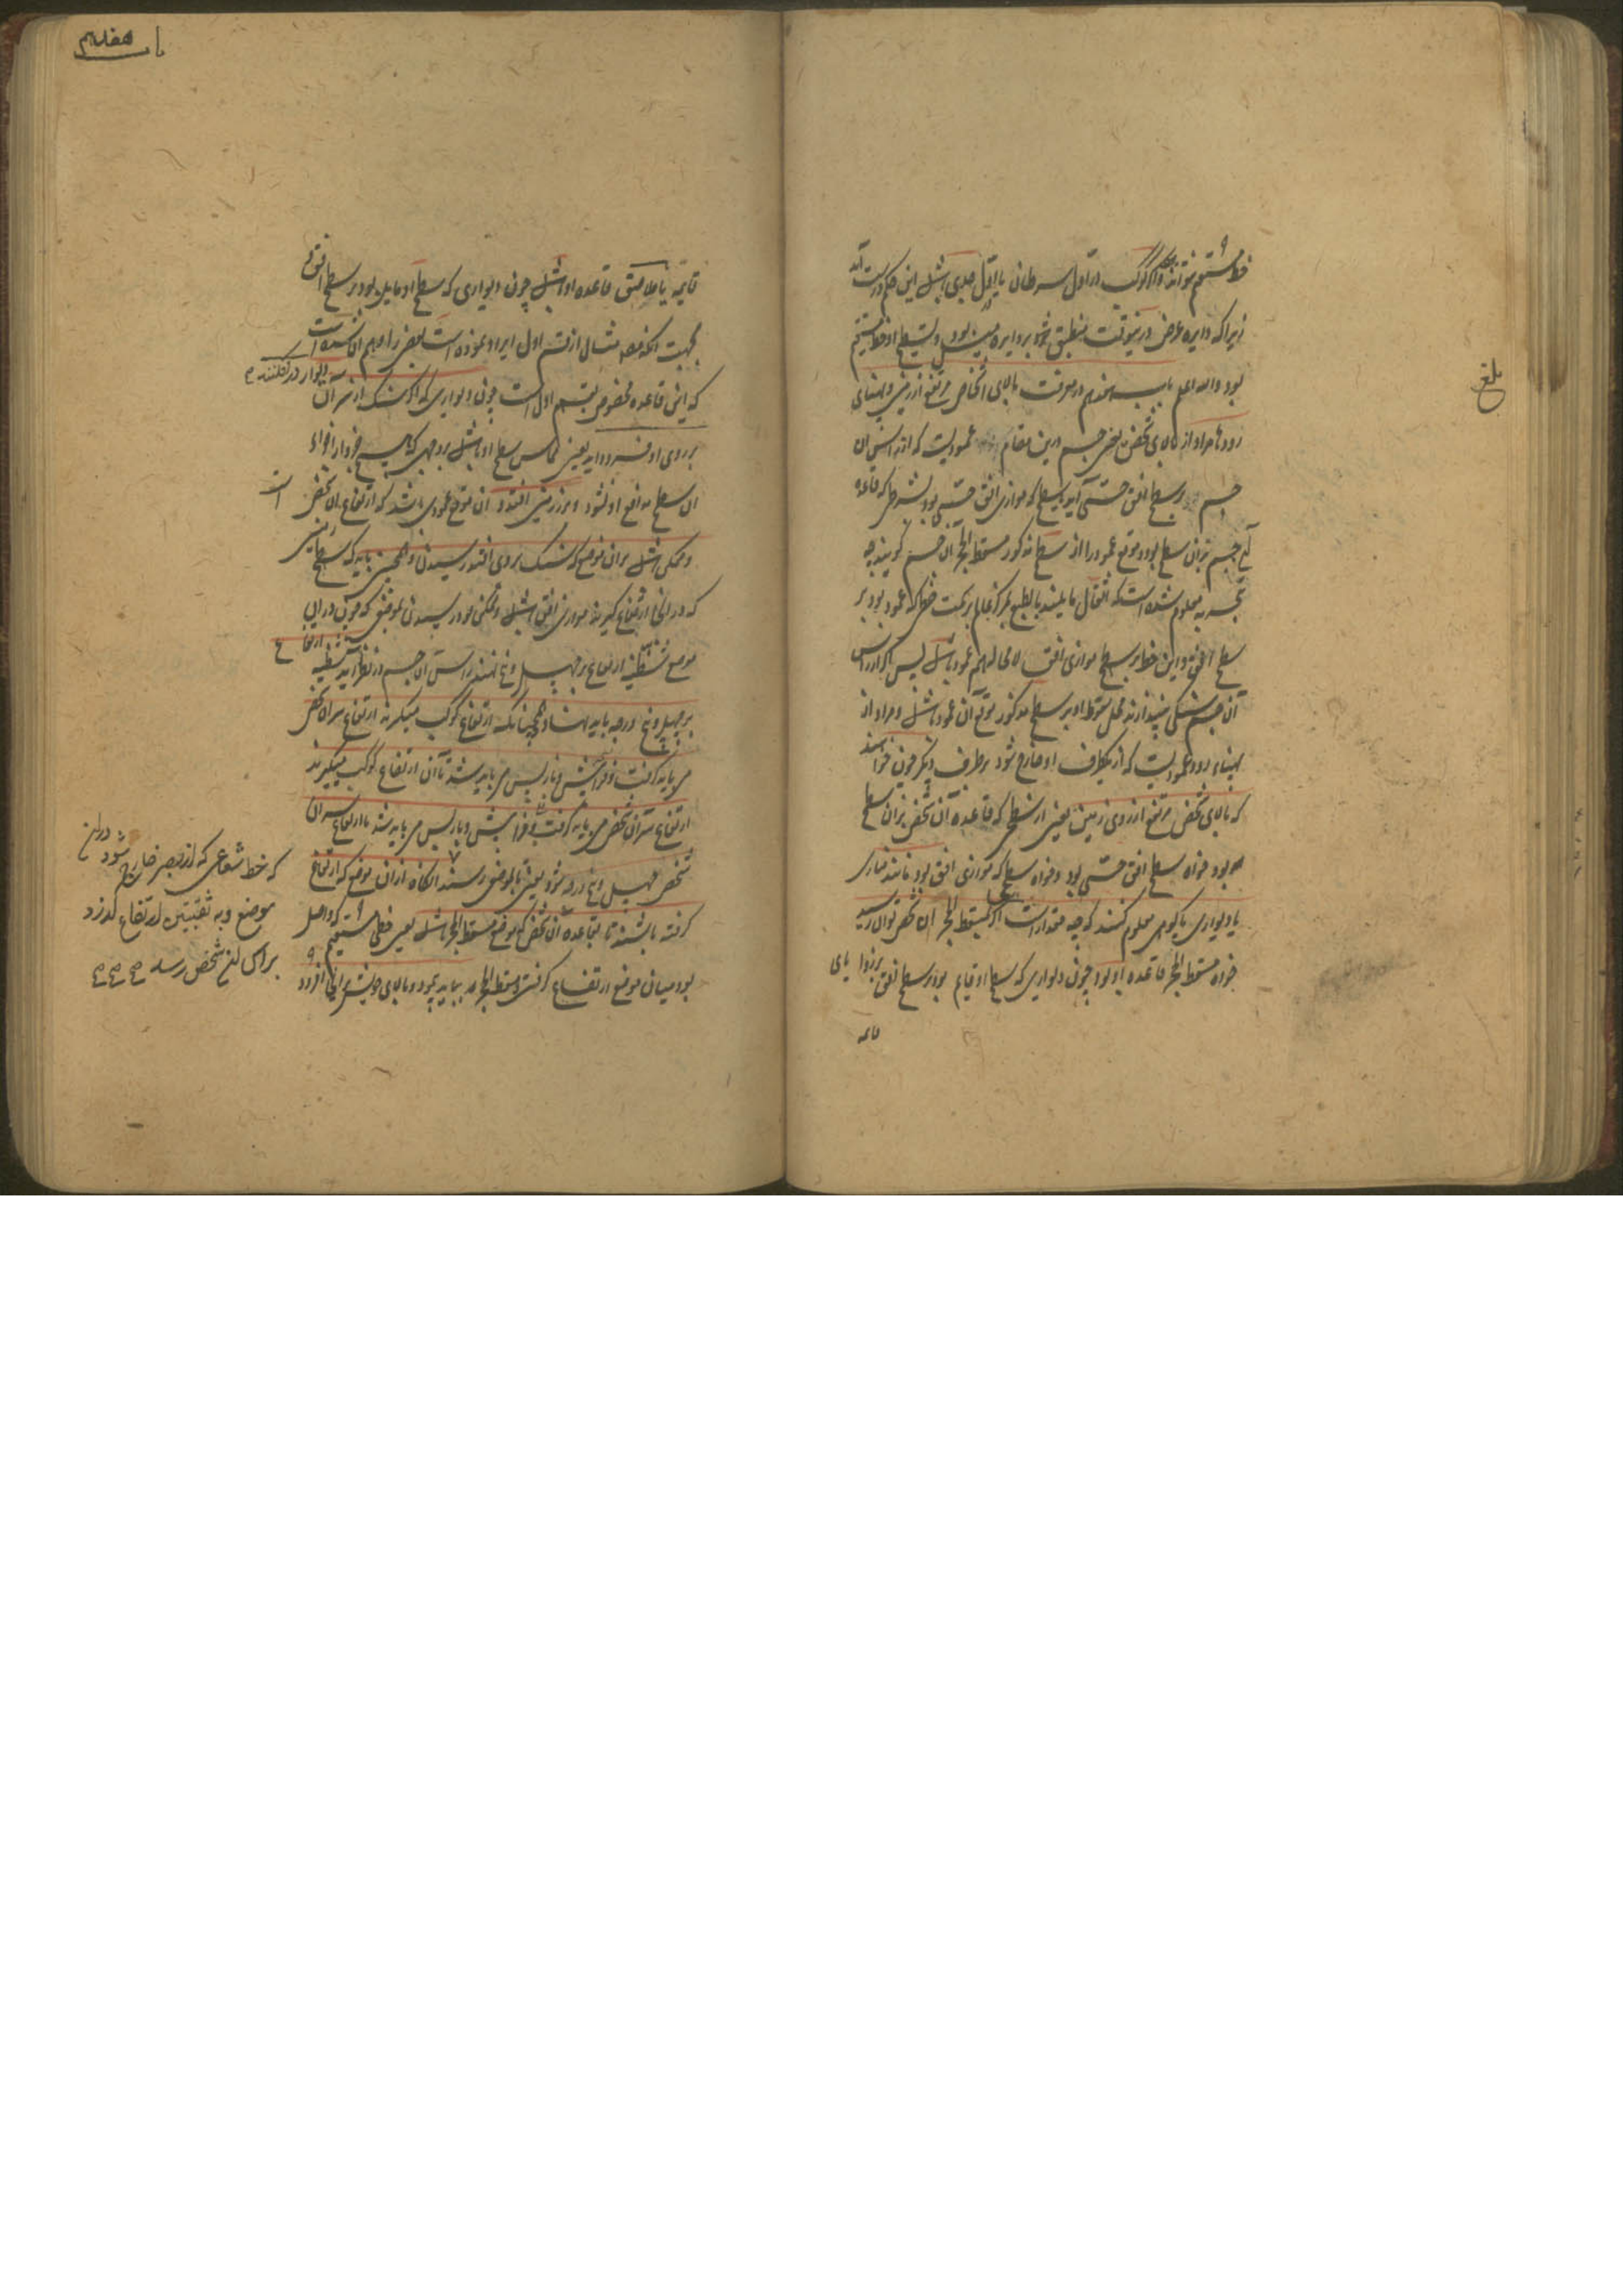 خط مستقیم نتواند و اگر کوکب در اول سرطان یا اول جدی باشد این حکم درست آید
زیرا که دایره عرض درینوقت منطبق شود بر دایره میل و سطح او خط مستقیم
بود والله اعلم باب هفدهم در معرفت بالای اشخاص مرتفع از زمین و پهنای
رودها مراد از بالای شخص یعنی جسم درین مقام عمودیست که از رأس آن
جسم بر سطح افق حسی آید یا سطحی که موازی افق حسی بود بشرطی که قاعده
آن جسم بران سطح بود و موقع عمود را از سطح مذکور مسقط الحجر آن جسم گویند چه
تجربه معلوم شده است که اثقال مایلند بالطبع بمرکز عالم بر سمت خطی که عمود بود بر
سطح افق و این خط بر سطح موازی افق لا محاله هم عمود باشد پس اگر از رأس
آن جسم سنگی بیندازند محل سقوط او بر سطح مذکور موقع آن عمود باشد و مراد از
پهنای رود عمودیست که از یکطرف او خارج شود بر طرف دیگر چون خواهند
که بالای شخص مرتفع از روی زمین یعنی از سطحی که قاعده آن شخص بران سطح
بود خواه سطح افق حسی بود و خواه سطحی که موازی افق بود مانند مناری
یا دیواری یا کوهی معلوم کنند که چه مقدار است اگر بمسقط الحجر آن شخص توان رسید
خواه مسقط الحجر قاعده او بود چون دیواری که سطح او قایم بود بر سطح افق بر زوایای
قایمه
بلغ
با هفدهم
قایمه یا ملاصق قاعده او باشد چون دیواری که سطح او مایل بود بر سطح افق و
بجهت آنکه مصنف مثال از قسم اول ایراد نموده است بعضی را وهم آن شده است
که این قاعده مخصوص بقسم اول است چون دیواری که اگر سنگ از سر آن
دیوار درافکنند
بر روی او فرود آید یعنی مماس سطح او باشد بر وجهی که هیچ جزو از اجزاء
آن سطح مانع او نشود و بر زمین افتد و آن موقع عمودی باشد که ارتفاع آن شخص است
و ممکن باشد بران موضع که سنگ بروی افتد رسیدن و همچنین باید که سطح زمینی
که در انجا ارتفاع گیرند موازی افق باشد و ممکن بود رسیدن بموضعی که چون در این
موضع شظیه ارتفاع بر چهل و پنج نهند رأس آن جسم در نظر آید شظیه ارتفاع
بر چهل و پنج درجه باید نهاد و همچنانکه ارتفاع کوکب میگیرند ارتفاع سر آن شخص
می باید گرفت و فرا پیش و باز پس می باید شد تا آن ارتفاع کوکب میگیرند
ارتفاع سر آن شخص می باید گرفت و فرا پیش و باز پس می باید شد تا ارتفاع سر آن
شخص چهل و پنج درجه شود یعنی تا بموضعی رسند آنگاه از ان موضع که ارتفاع
گرفته باشند تا بقاعده آن شخص که موقع مسقط الحجر باشد یعنی خطی مستقیم که واصل
بود میان موضع ارتفاع گرفتن و مسقط الحجر بباید پیمود و بالای خویش برانجا افزود
که خط شعاعی که از بصر خارج شود دران
موضع و به ثقبتین ارتفاع گذرد
براس ان شخص رسد